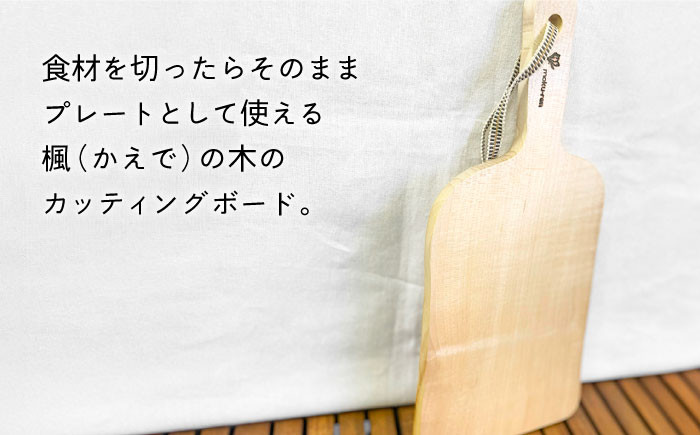 食材を切ったらそのまま
プレートとして使える
楓（かえで）の木の
カッティングボード。